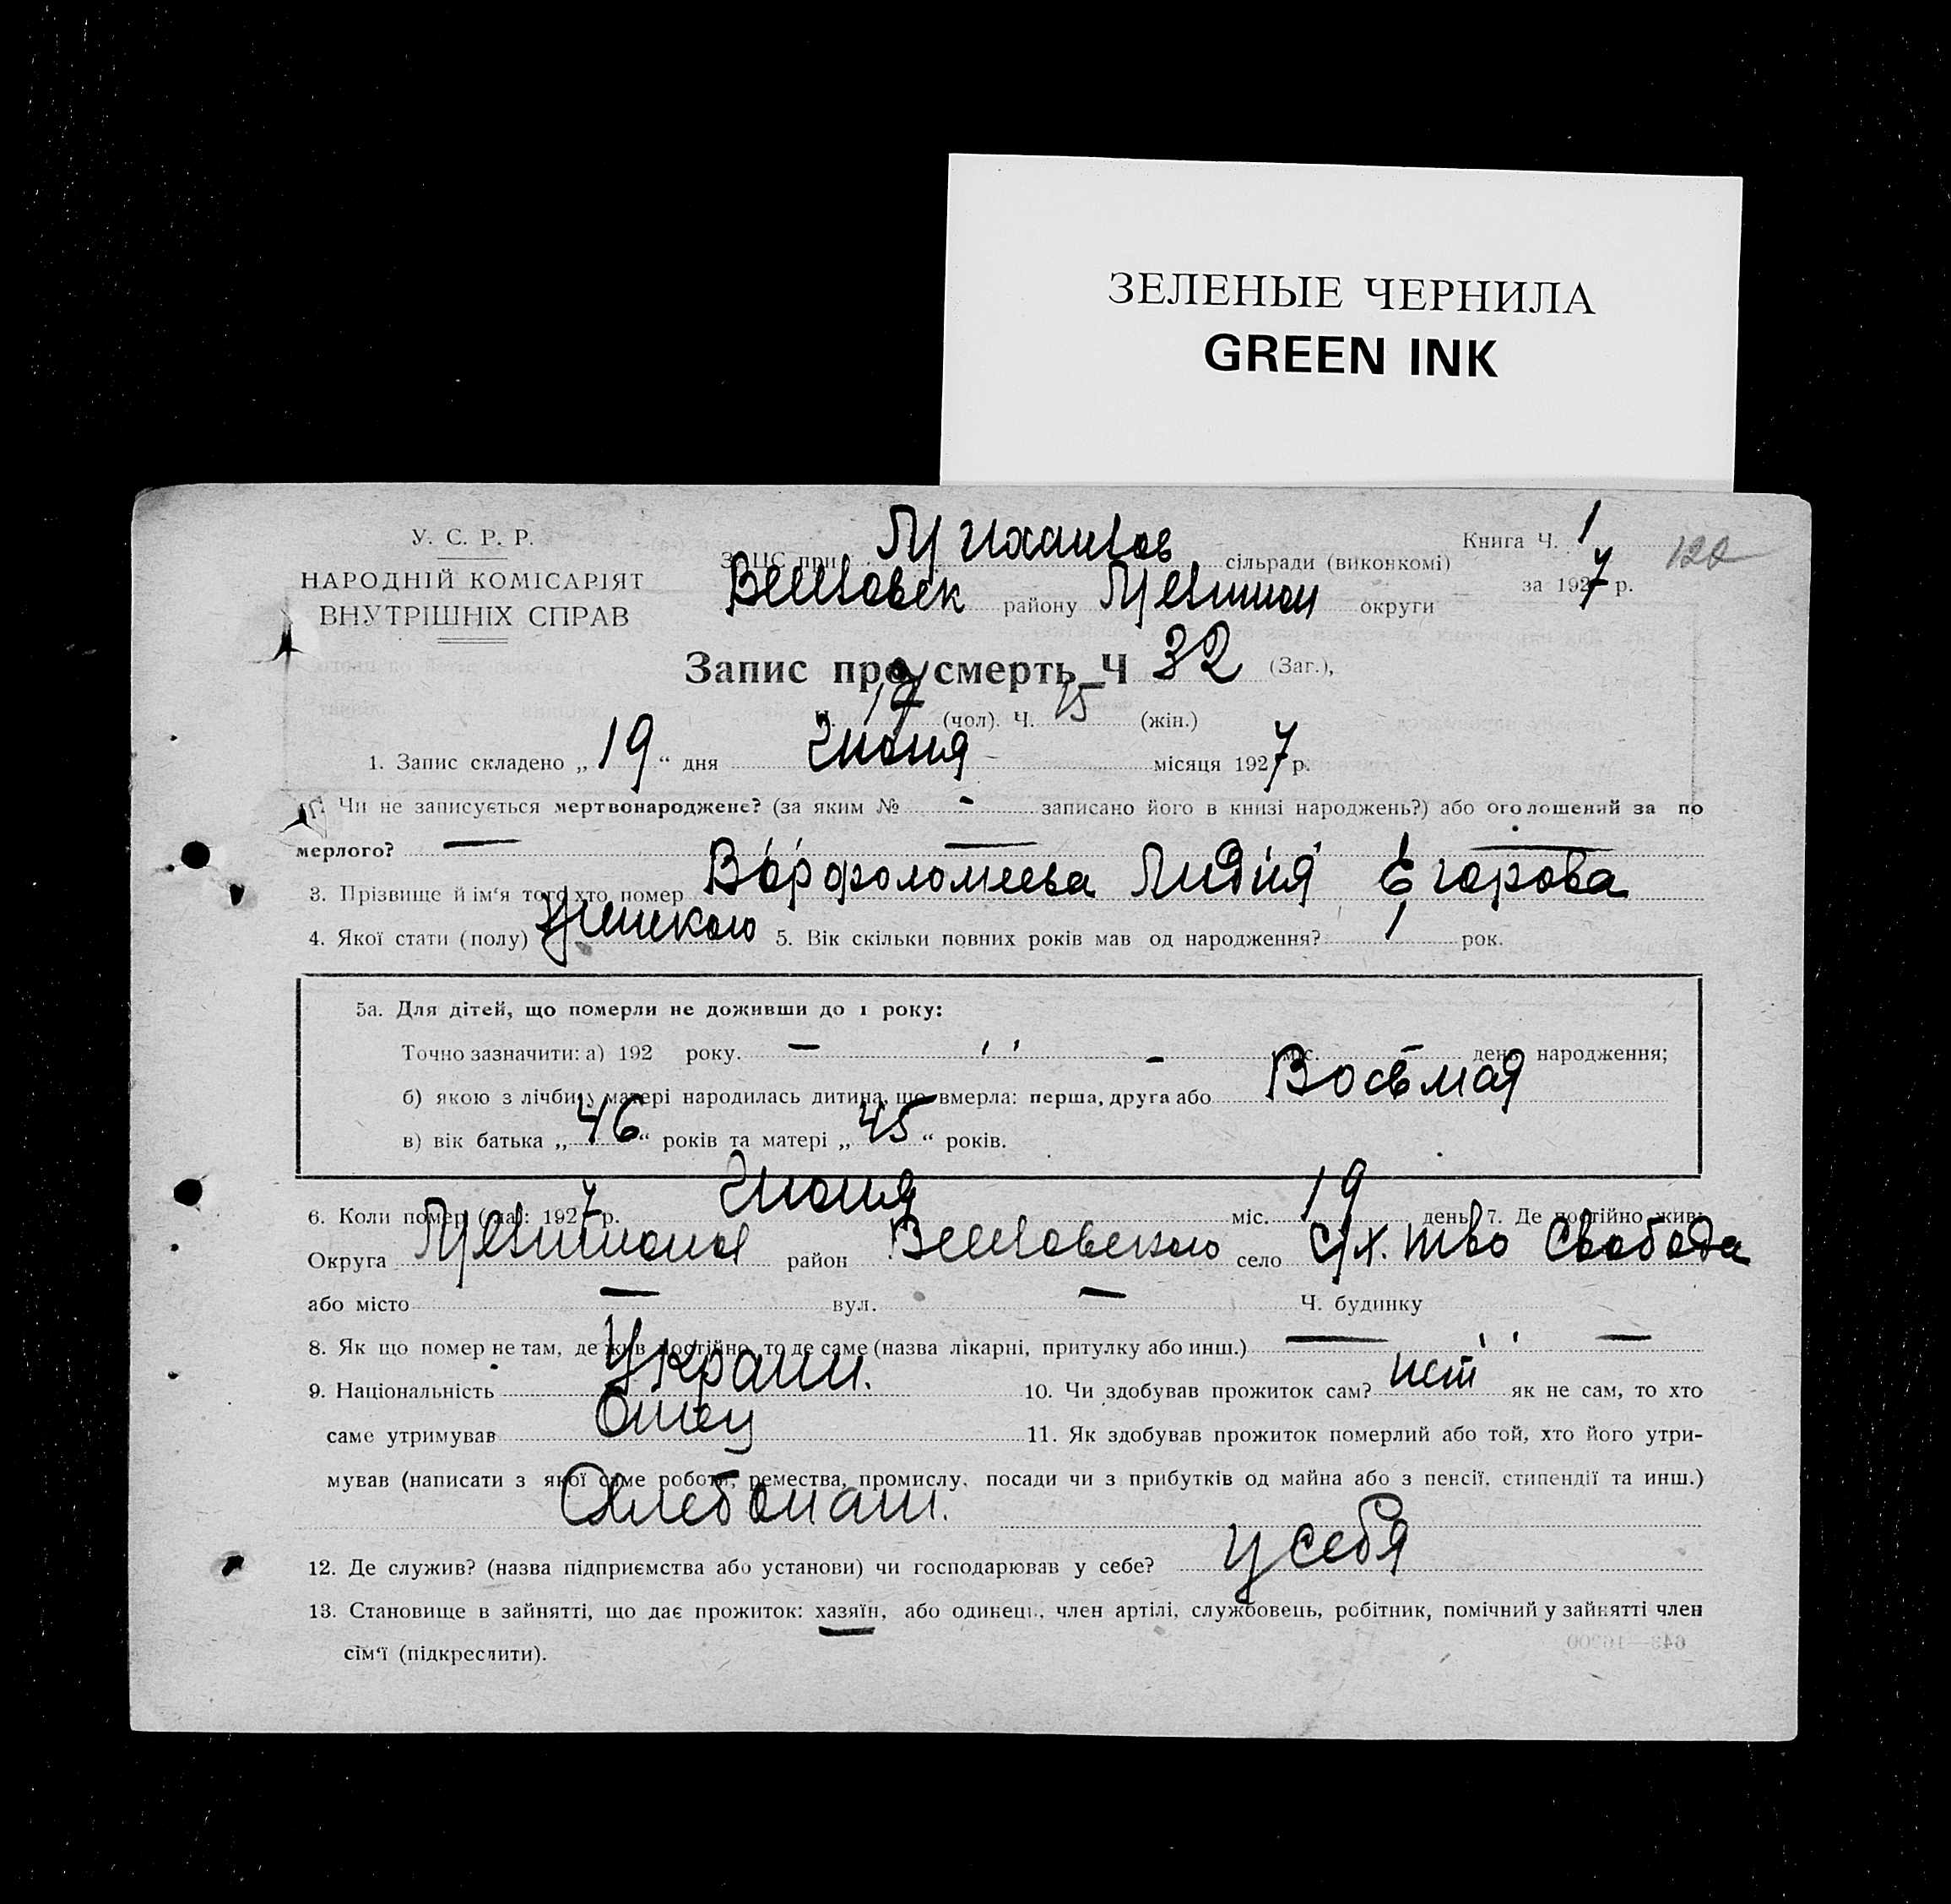 ЗЕЛЕНЫЕ ЧЕРНИЛА
GREEN INK
У. С. Р. Р.
НАРОДНІЙ КОМІСАРІЯТ
ВНУТРІШНІХ СПРАВ
ЗАГС при сільради (виконкомі)
району округи
Книга Ч. 1
за 1927 р.
120
Запис про смерть Ч 32 (Заг.),
Ч. 17 (чол). Ч. 15 (жін.)
1. Запис складено „19“ дня Июня місяця 1927 р.
Чи не записується мертвонароджене? (за яким № - записано його в книзі народжень?) або оголошений за по
мерлого? —
3. Прізвище й ім‘я того хто помер Ворфоломеева Лидия Егорова
4. Якої стати (полу) Женскою 5. Вік скільки повних років мав од народження? 1 рок.
5а. Для дітей, що померли не доживши до 1 року:
Точно зазначити: а) 192 року. — міс. — день народження;
б) якою з лічбину матері народилась дитина, що вмерла: перша, друга або Восьмая
в) вік батька „46“ років та матері „45“ років.
6. Коли помер (ла): 1927 р. Июня міс. 19 день 7. Де постійно жив:
Округа район село с/х. тво Свобода
або місто — вул. — Ч. будинку
8. Як що помер не там, де жив постійно, то де саме (назва лікарні, притулку або инш.) — " —
9. Національність Украин. 10. Чи здобував прожиток сам? нет як не сам, то хто
саме утримував Отец 11. Як здобував прожиток померлий або той, хто його утри-
мував (написати з якої саме роботи, ремества, промислу, посади чи з прибутків од майна або з пенсії, стипендії та инш.)
Хлебопаш.
12. Де служив? (назва підприємства або установи) чи господарював у себе? у себя
13. Становище в зайнятті, що дає прожиток: хазяїн, або одинець, член артілі, службовець, робітник, помічний у зайнятті член
сім‘ї (підкреслити).